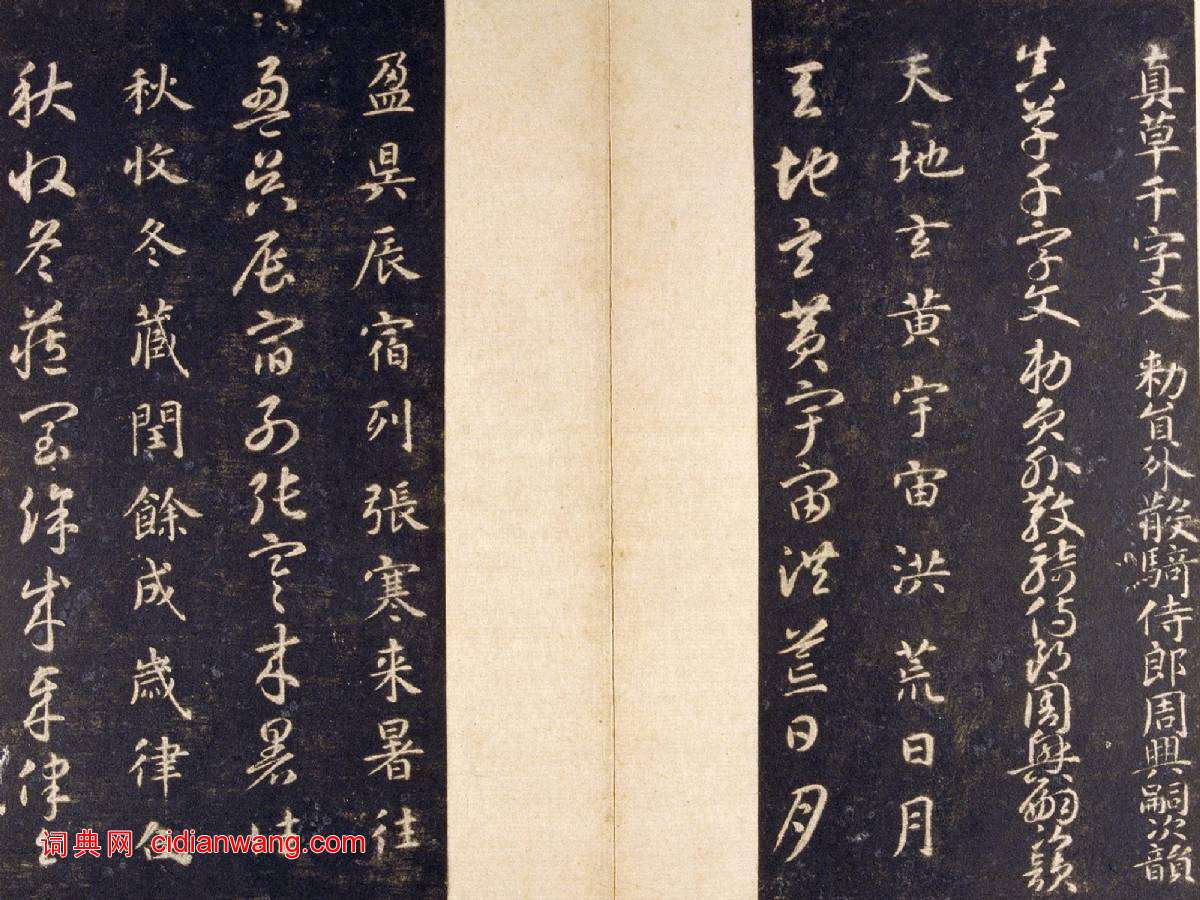 真草千字文 勅員外散騎侍郎周興嗣次韻
真草千字文勅員外散騎侍郎周興嗣次韻
天地玄黄宇宙洪荒日月
天地玄黄宇宙洪荒日月
盈昃辰宿列張寒来暑往
盈昃辰宿列張寒来暑往
秋收冬藏閏餘成歲律吕
秋收冬藏閏餘成歲律吕
词典网：cidianwang.com